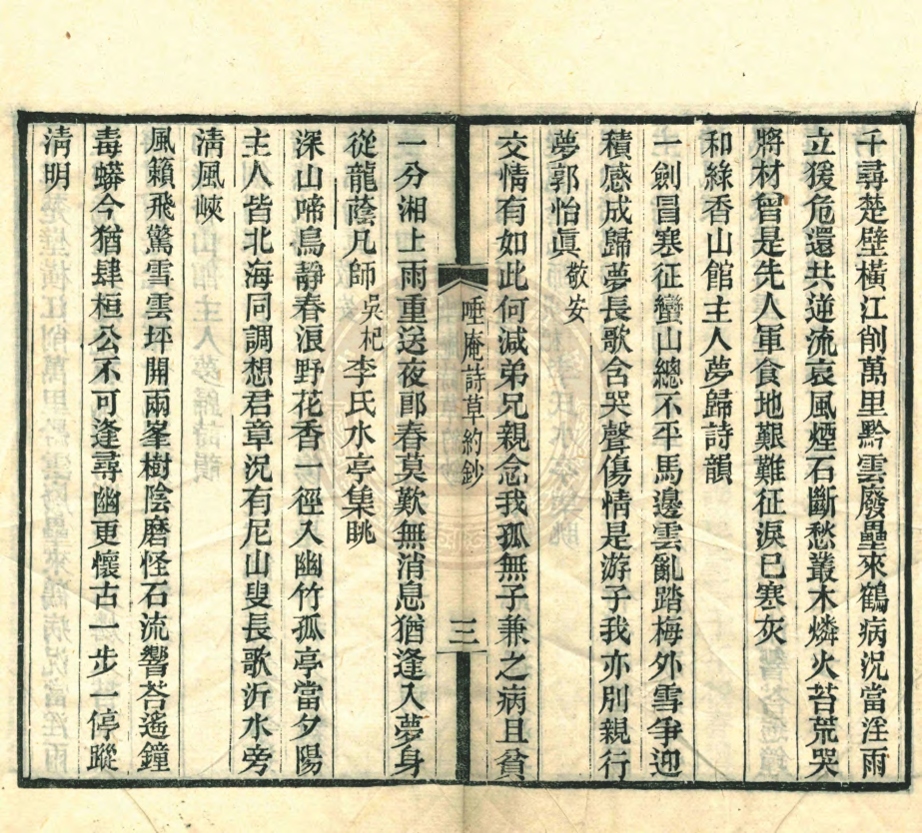 千尋楚壁橫江削萬里黔雲廢壘來鶴病況當淫雨
立猨危還共逆流哀風煙石斷愁叢木燐火苔荒哭
將材曾是先人軍食地艱難征淚已寒灰
和綠香山館主人夢歸詩韻
一劍冒寒征蠻山總不平馬邊雲亂踏梅外雪爭迎
積感成歸夢長歌含哭聲傷情是游子我亦別親行
夢郭怡眞敬安
交情有如此何減弟兄親念我孤無子兼之病且貧
唾庵詩草約鈔
三
一分湘上雨重送夜郎春莫歎無消息猶逢入夢身
從龍蔭凡師吳杞李氏水亭集眺
深山啼鳥靜春浪野花香一徑入幽竹孤亭當夕陽
主人皆北海同調想君章況有尼山叟長歌沂水旁
淸風峽
風籟飛驚雪雲坪開兩峯樹陰磨怪石流響荅遙鐘
毒蟒今猶肆桓公不可逢尋幽更懷古一步一停蹤
淸明